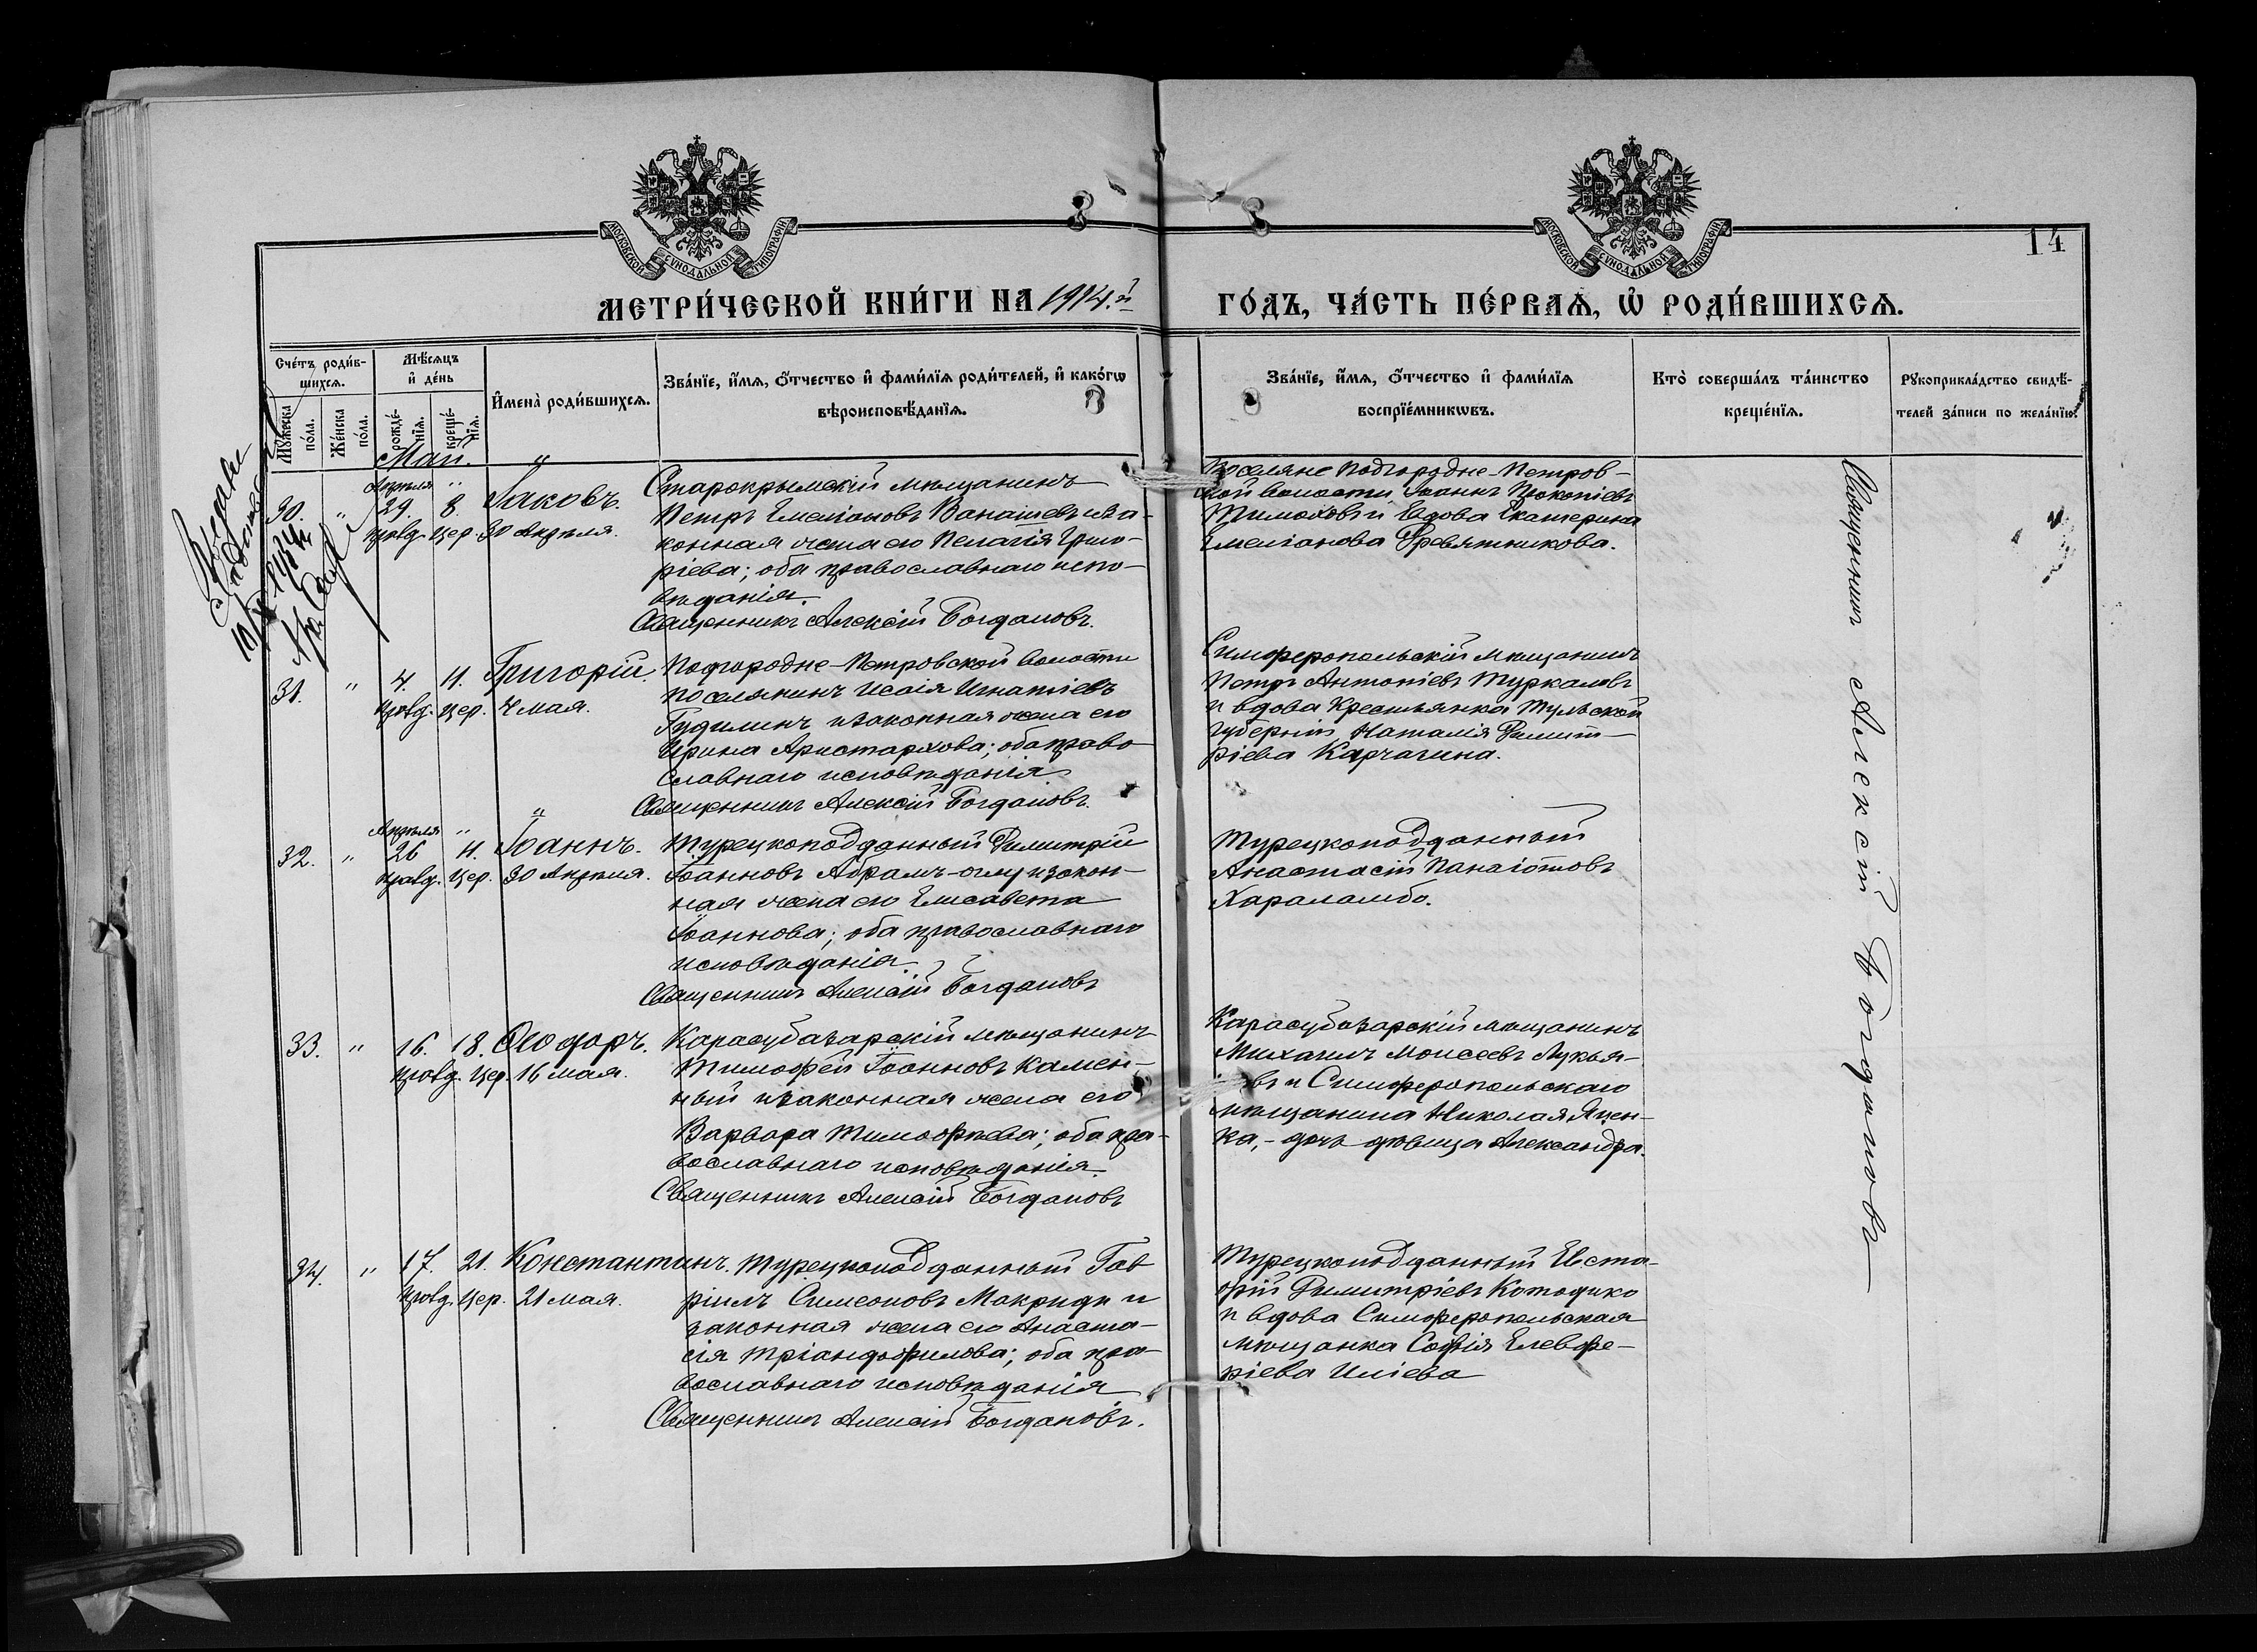 МОСКОВСКОЙ СѴНОДАЛЬНОЙ ТИПОГРАФІИ
МОСКОВСКОЙ СѴНОДАЛЬНОЙ ТИПОГРАФІИ
14
МЕТРИ́ЧЕСКОЙ КНИ́ГИ НА 1914.й
ГО́ДЪ, ЧА́СТЬ ПЕ́РВАѦ, Ѡ҆ РОДИ́ВШИХСѦ.
Сче́тъ роди́в-
шихсѧ.
Мꙋжеска по́ла.
Же́нска по́ла.
Мѣ́сѧцъ
и҆ де́нь
рожде́-
нїѧ.
креще́-
нїѧ.
И҆мена̀ роди́вшихсѧ.
Зва́нїе, и҆́мѧ, ѻ҆́тчество и҆ фами́лїѧ роди́телей, и҆ како́гѡ
вѣроисповѣ́данїѧ.
Зва́нїе, и҆́мѧ, ѻ҆́тчество и҆ фами́лїѧ
воспрїе́мникѡвъ.
Кто̀ соверша́лъ та́инство
креще́нїѧ.
Рꙋкоприкла́дство свидѣ́-
телей за́писи по жела́нїю.
Май.
30. " Апрѣля 29. 8. Іаковъ.
правд. цер. 30 Апрѣля.
Старокрымскій мѣщанинъ
Петръ Емеліановъ иза-
конная жена его Пелагія Григо-
ріева; оба православнаго испо-
вѣданія.
Священникъ Алексій Богдановъ.
Поселяне Подгородне-Петров-
ской волости Іоаннъ Прокопіевъ
Тимоховъ и вдова Екатерина
Емеліанова Древятникова.
31. " 4. 11. Григорій.
правд. цер. 4 мая.
Подгородне-Петровской волости
поселянинъ Исаія Игнатіевъ
Гудилинъ изаконная жена его
Ирина Аристархова; оба право-
славнаго исповѣданія
Священникъ Алексій Богдановъ.
Симферопольскій мѣщанинъ
Петръ Антоніевъ Туркаловъ
и вдова крестьянка Тульской
губерніи Наталія Димит-
ріева Карчагина.
32. " Апрѣля 26 11. Іоаннъ.
правд. цер. 30 Апрѣля.
Турецкоподданный Димитрій
Іоанновъ Абрамъ-оглу изакон-
ная жена его Елисавета
Іоаннова; оба православнаго
исповѣданія.
Священникъ Алексій Богдановъ
Турецкоподданный
Анастасій Панаіотовъ
Хараламбо.
33. " 16. 18. Ѳеодоръ.
правд. цер. 16 мая.
Карасубазарскій мѣщанинъ
Тимофей Іоанновъ Камен-
ный изаконная жена его
Варвара Тимофѣева; оба пра-
вославнаго исповѣданія.
Священникъ Алексій Богдановъ
Карасубазарскій мѣщанинъ
Михаилъ Моисеевъ Лукья-
новъ и Симферопольскаго
мѣщанина Николая Яцен-
ка,- дочь дѣвица Александра.
34. " 17. 21. Константинъ.
правд. цер. 21 мая.
Турецкоподданный Гав
ріилъ Симеоновъ Макриди и
законная жена его Анаста-
сія Тріандофилова; оба пра-
вославнаго исповѣданія
Священникъ Алексій Богдановъ.
Турецкоподданный Евста-
фій Димитріевъ Котодико
и вдова Симферопольская
мѣщанка Софія Елевфе-
ріева Иліева
Священникъ Алексій Богдановъ